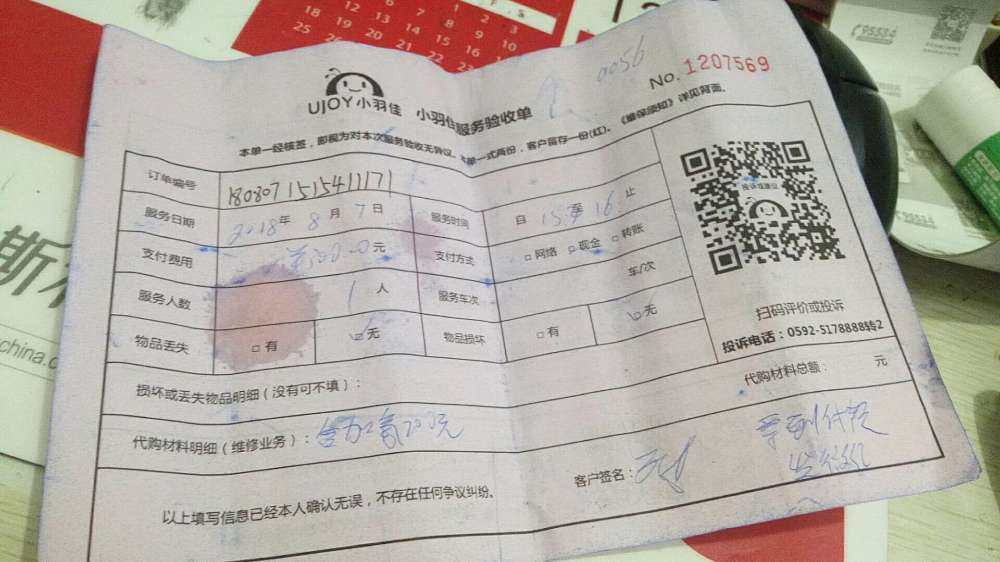 1 2 3
12 7 8 9 10
18 13
25 19 20 21 22
95534
UJOY小羽佳 小羽佳服务验收单
0056
No. 1207569
本单一经核签，即视为对本次服务验收无异议。本单一式两份，客户留存一份(红)。《维保须知》详见背面。
订单编号 180807151541171
服务日期 2018年 8月 7日 服务时间 自 15至16 止
支付费用 ¥200.0元 支付方式 □网络 □现金 □转账
服务人数 1人 服务车次 车/次
物品丢失 □有 □无 物品损坏 □有 □无
投诉或建议
扫码评价或投诉
投诉电话：0592-5178888转2
损坏或丢失物品明细（没有可不填）：
代购材料总额： 元
代购材料明细（维修业务）： 200元
客户签名：
以上填写信息已经本人确认无误，不存在任何争议纠纷。
斯
china.com